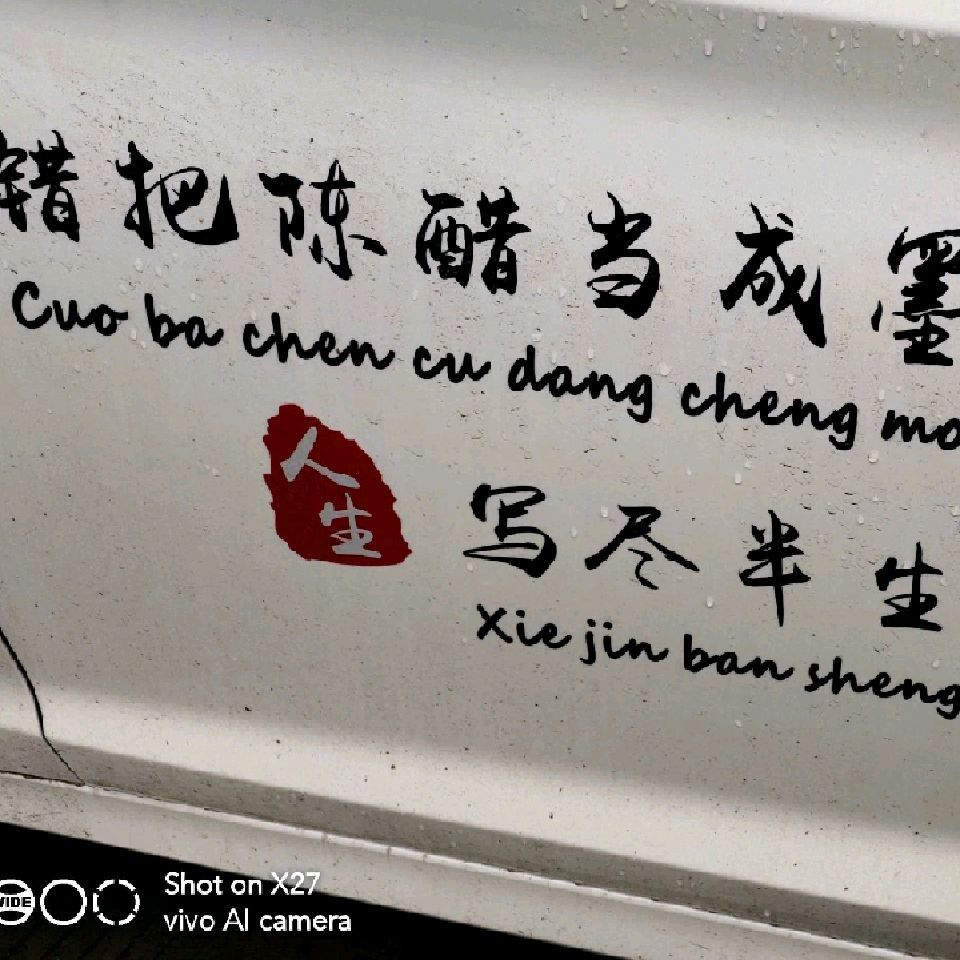 错把陈醋当成墨
Cuo ba chen cu dang cheng mo
人生
写尽半生
Xie jin ban sheng
WIDE
Shot on X27
vivo AI camera